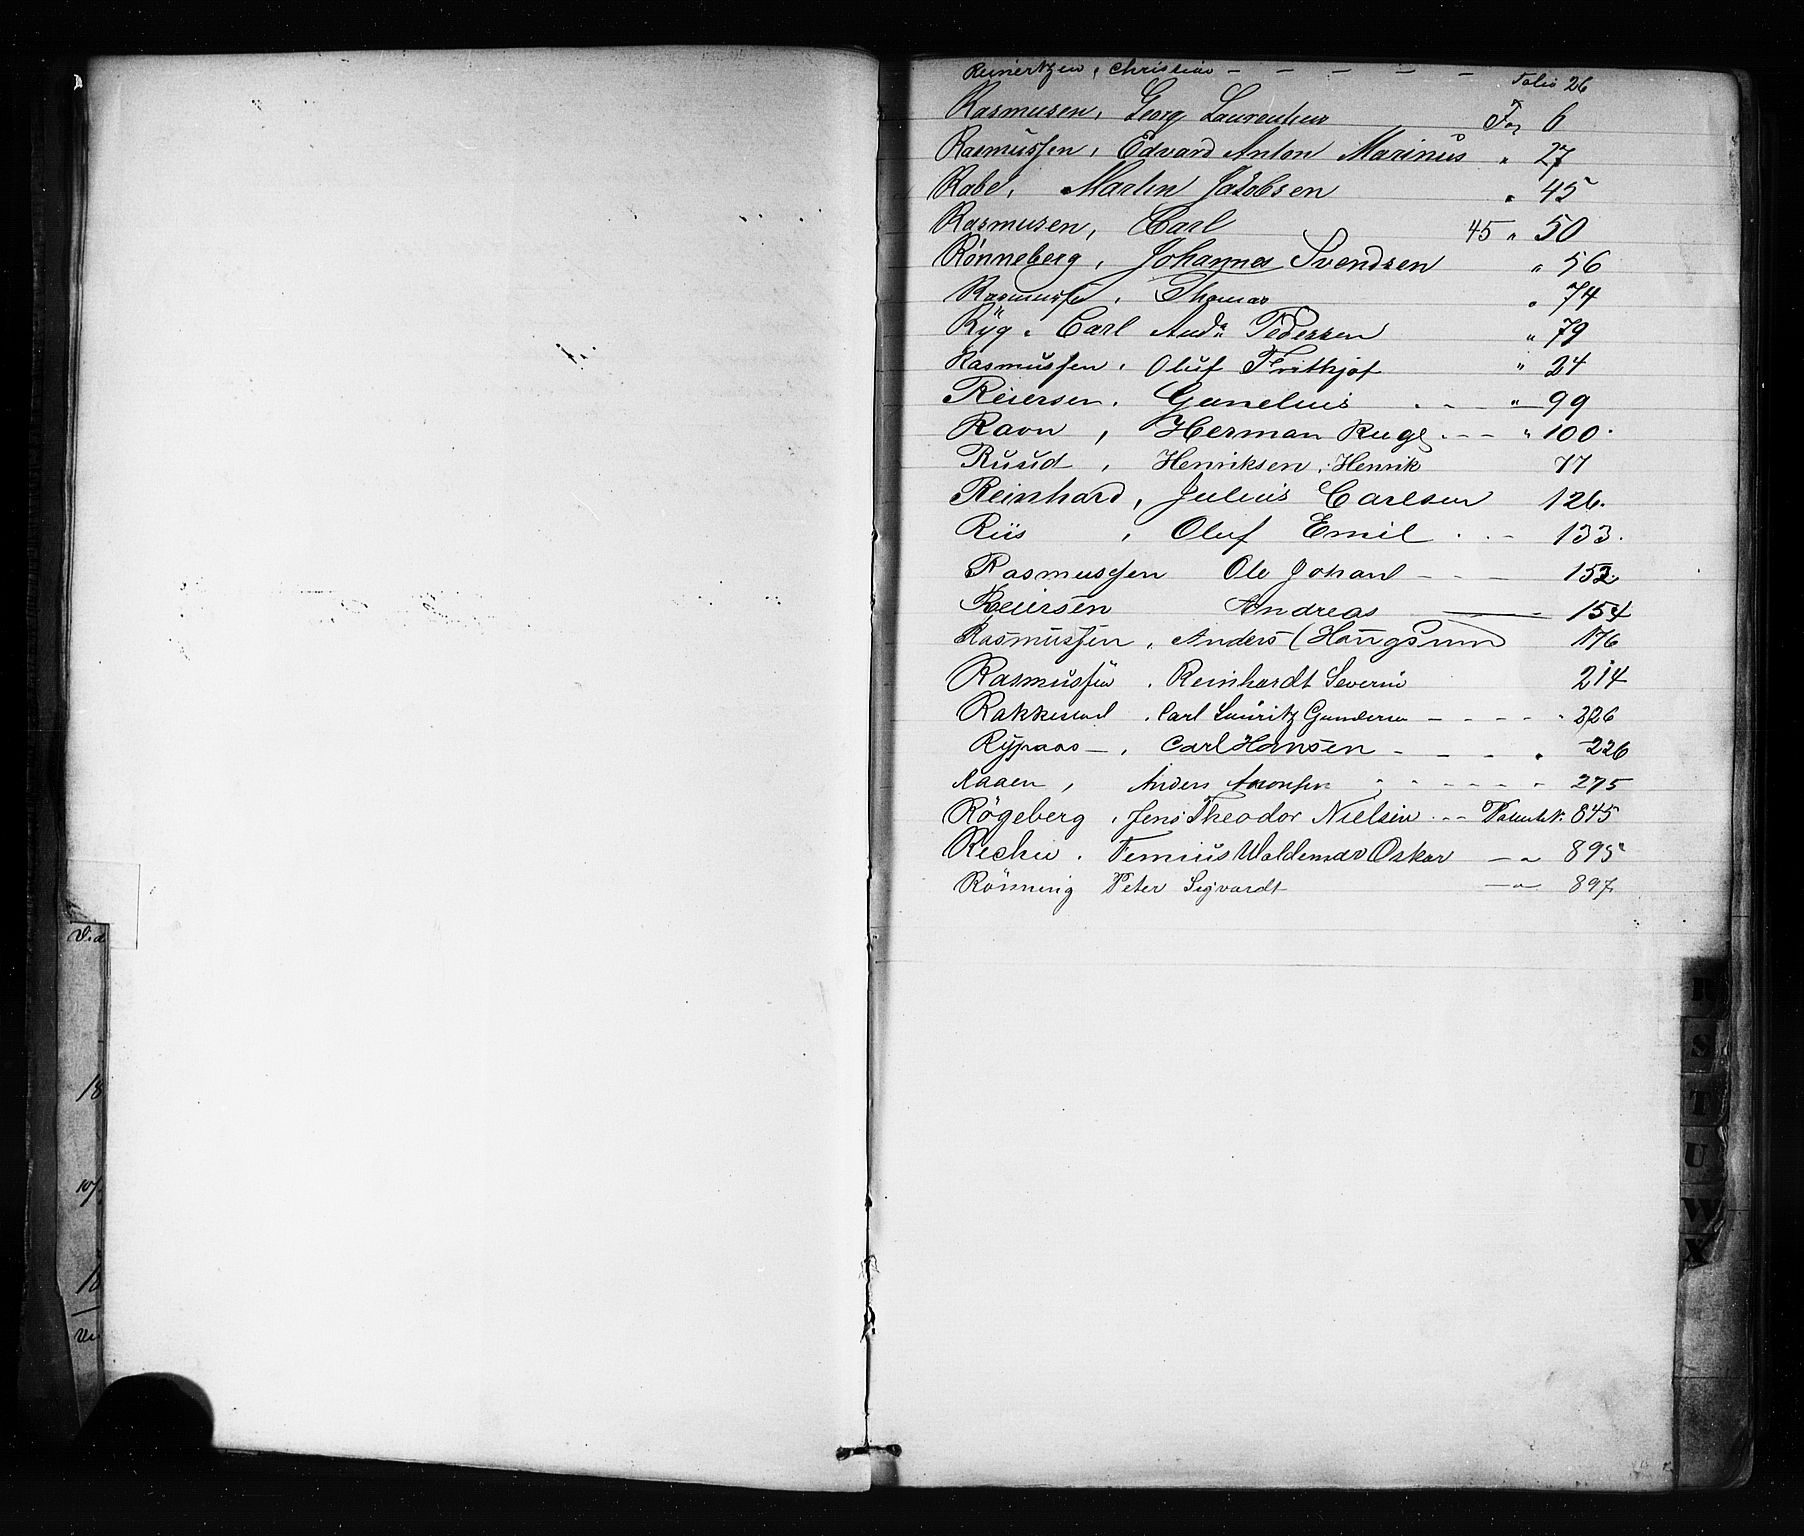 Vid
18
10/
18
Reinertzen, Christian - - - - - Folio 26
Rasmusen, Georg Laurentius Fol 6
Rasmussen, Edvard Anton Marinus " 27
Rabe, Martin Jakobsen " 45
Rasmusen, Carl 45 " 50
Rönneberg, Johannes Svendsen " 56
Rasmussen, Thomas " 74
Ryg, Carl And. Pedersen " 79
Rasmussen, Oluf Frithjof " 24
Reiersen, Gunelius . - - " 99
Ravn, Herman Ruge - - " 100.
Ruud, Henriksen, Henrik 77
Reinhard, Julius Carlsen 126.
Riis, Oluf Emil . . - 133.
Rasmussen Ole Johan - - - 152
Reiersen Andreas 154
Rasmussen, Anders (Haugsund) 176
Rasmussen, Reinhardt Severin 214
Rakkestad, Carl Lauritz Gundersen - - - - " 226
Rypaas -, Carl Hansen - - - " 226
Raaen, Anders Aronsen " - - - - " 275
Rögeberg, Jens Theodor Nielsen . . - Patent N. 845
Waldemar Oskar — " 895
Rönning Peter Sigvardt — " 897
R
S
T
U
W
X